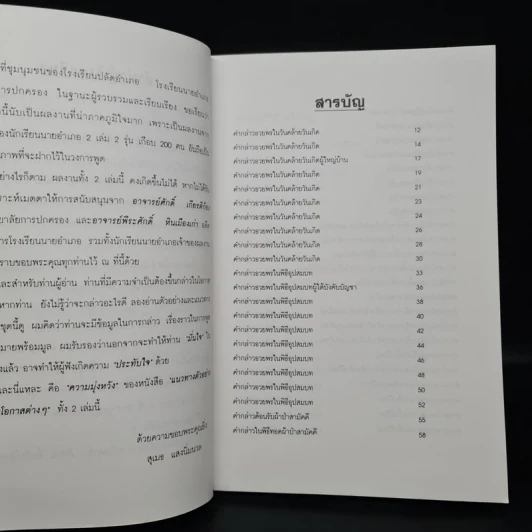 ที่ชุมนุมชนของโรงเรียนปลัดอำเภอ โรงเรียนนายอำเภอ
การปกครอง ในฐานะผู้รวบรวมและเรียบเรียง ขอเรียนว่า
นี้นับเป็นผลงานที่น่าภาคภูมิใจมาก เพราะเป็นผลงานจาก
องนักเรียนนายอำเภอ 2 เล่ม 2 รุ่น เกือบ 200 คน
ภาพที่จะฝากไว้ในวงการพูด
อย่างไรก็ตาม ผลงานทั้ง 2 เล่มนี้ คงเกิดขึ้นไม่ได้ หากไม่ได้รับ
ราะห์เมตตาให้การสนับสนุนจาก อาจารย์ศักดิ์
ยาลัยการปกครอง และอาจารย์พีระศักดิ์ หินเมืองเก่า
การโรงเรียนนายอำเภอ รวมทั้งนักเรียนนายอำเภอเจ้าของผลงาน
ราบขอบพระคุณทุกท่านไว้ ณ ที่นี้ด้วย
และสำหรับท่านผู้อ่าน ท่านที่มีความจำเป็นต้องขึ้นกล่าวในโอกาส
หากท่าน ยังไม่รู้ว่าจะกล่าวอะไรดี ลองอ่านตัวอย่างและแนวทาง
ชุดนี้ดู ผมคิดว่าจะมีข้อมูลในการกล่าว เรื่องราวในการพูด
มายพร้อมมูล ผมรับรองว่านอกจากจะทำให้ท่าน "มั่นใจ"
งแล้ว อาจทำให้ผู้ฟังเกิดความ "ประทับใจ" ด้วย
และนี่แหละ คือ "ความมุ่งหวัง" ของหนังสือ "แนวทางตัวอย่าง
โอกาสต่างๆ" ทั้ง 2 เล่มนี้
ด้วยความขอบพระคุณยิ่ง
สุเมธ แสงนิ่มนวล
สารบัญ
คำกล่าวอวยพรในวันคล้ายวันเกิด 12
คำกล่าวอวยพรในวันคล้ายวันเกิด 14
คำกล่าวอวยพรในวันคล้ายวันเกิดผู้ใหญ่บ้าน 17
คำกล่าวอวยพรในวันคล้ายวันเกิด 19
คำกล่าวอวยพรในวันคล้ายวันเกิด 21
คำกล่าวอวยพรในวันคล้ายวันเกิด 23
คำกล่าวอวยพรในวันคล้ายวันเกิด 24
คำกล่าวอวยพรในวันคล้ายวันเกิด 26
คำกล่าวอวยพรในวันคล้ายวันเกิด 28
คำกล่าวอวยพรในวันคล้ายวันเกิด 30
คำกล่าวอวยพรในพิธีอุปสมบท 33
คำกล่าวอวยพรในพิธีอุปสมบทผู้ใต้บังคับบัญชา 36
คำกล่าวอวยพรในพิธีอุปสมบท 38
คำกล่าวอวยพรในพิธีอุปสมบท 40
คำกล่าวอวยพรในพิธีอุปสมบท 42
คำกล่าวอวยพรในพิธีอุปสมบท 44
คำกล่าวอวยพรในพิธีอุปสมบท 46
คำกล่าวอวยพรในพิธีอุปสมบท 48
คำกล่าวอวยพรในพิธีอุปสมบท 50
คำกล่าวอวยพรในพิธีอุปสมบท 52
คำกล่าวต้อนรับผ้าป่าสามัคคี 55
คำกล่าวในพิธีทอดผ้าป่าสามัคคี 58